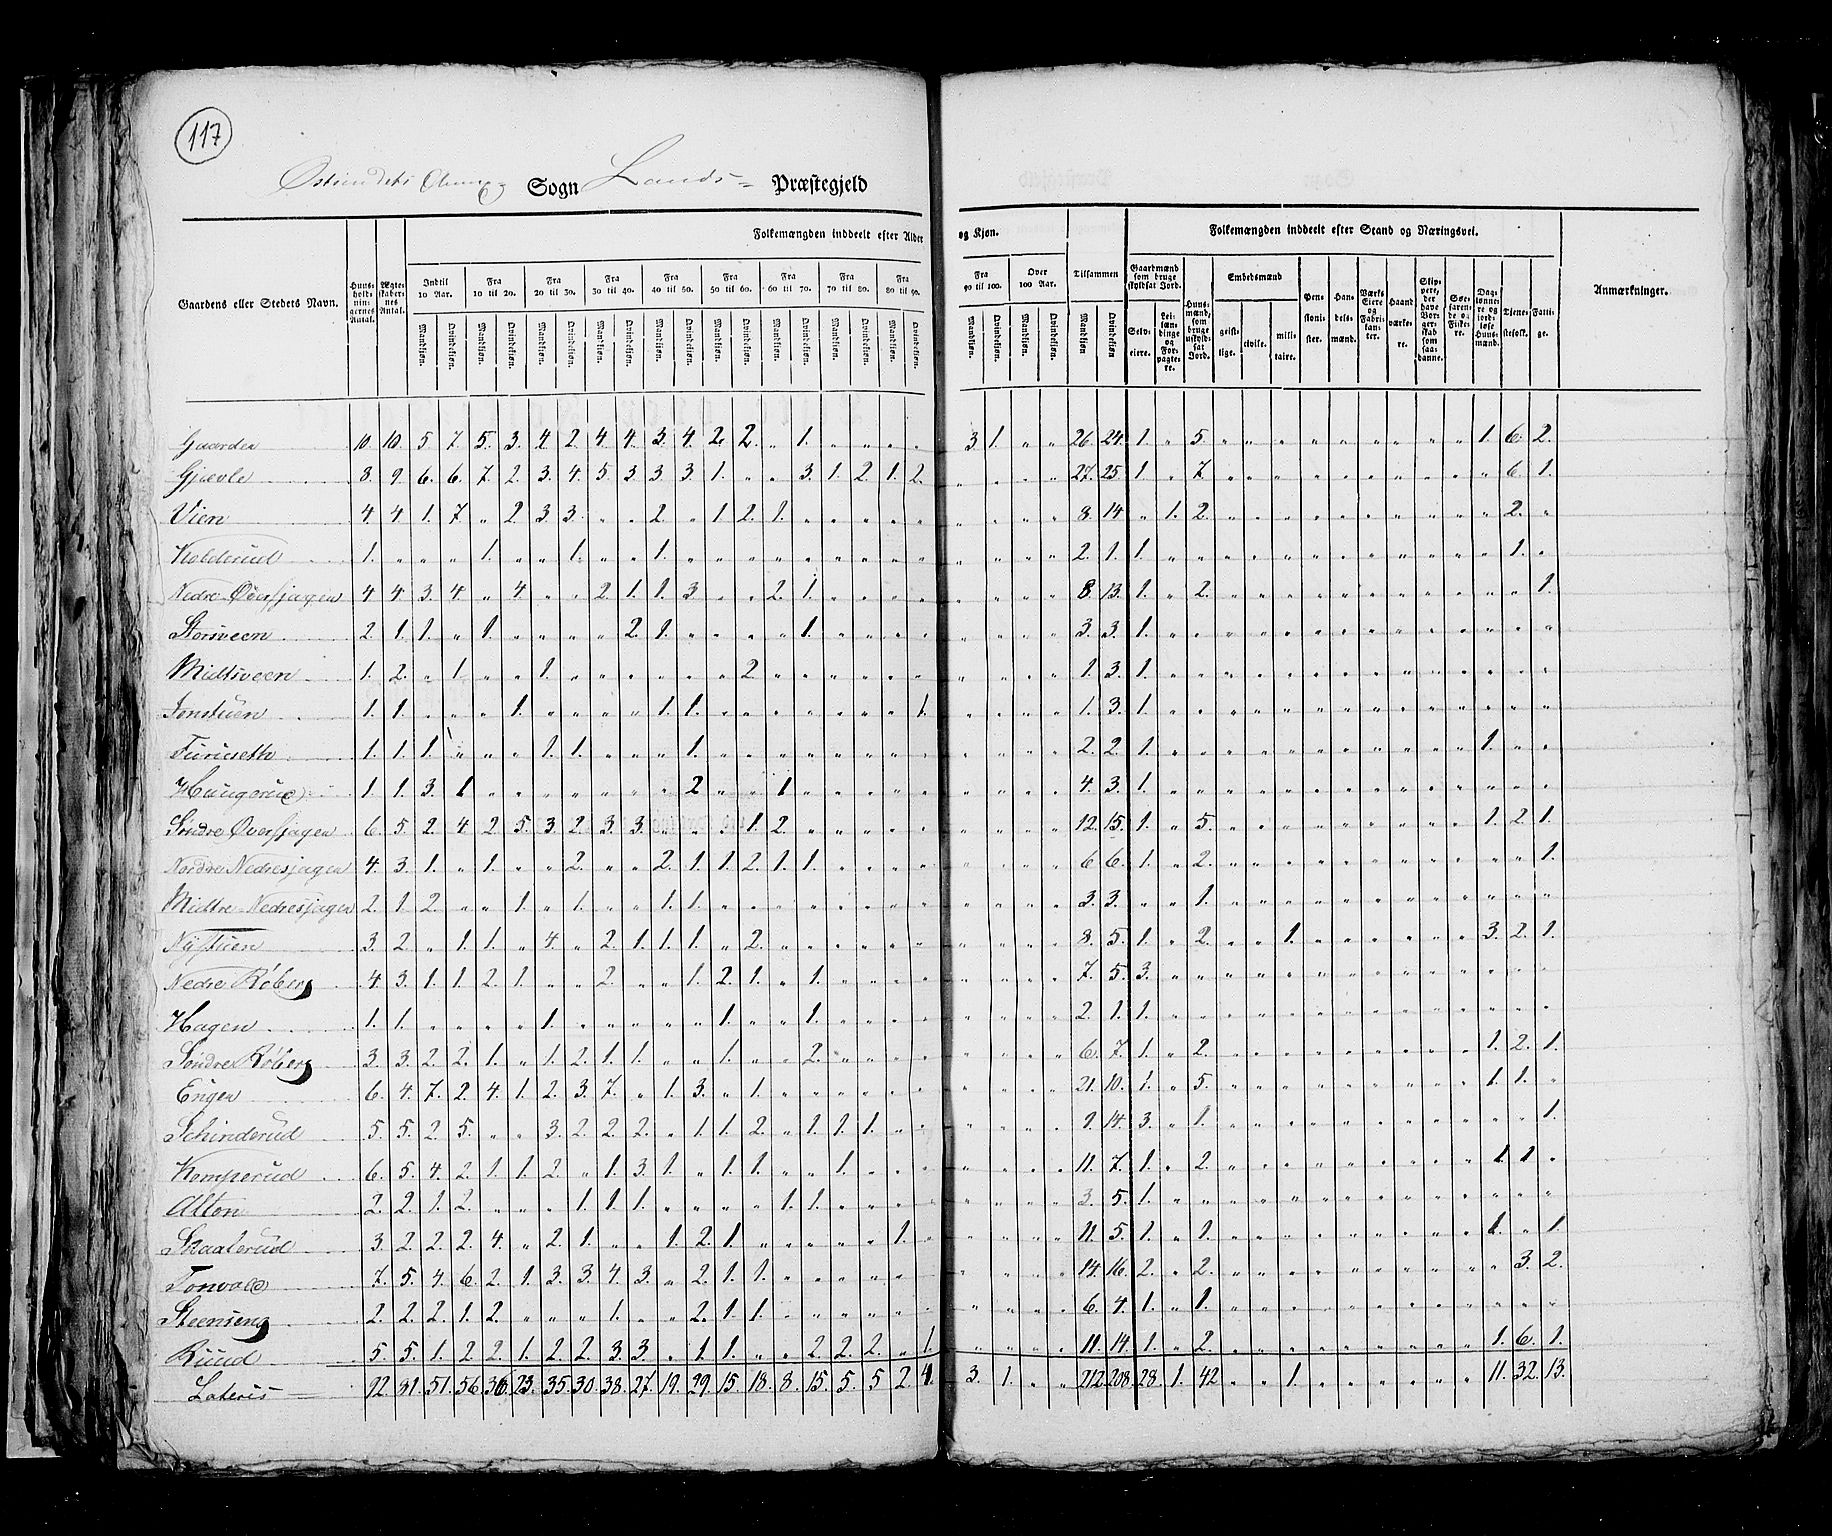 117
Sogn Lands Præstegjeld
Gaardens eller Stedets Navn.
Huusholdningernes Antal.
Ægteskabernes Antal.
Folkemængden inddeelt efter Alder og Kjøn.
Indtil 10 Aar. Fra 10 til 20. Fra 20 til 30. Fra 30 til 40. Fra 40 til 50. Fra 50 til 60. Fra 60 til 70. Fra 70 til 80. Fra 80 til 90. Fra 90 til 100. Over 100 Aar. Tilsammen
Mandkjøn. Qvindekjøn.
Folkemængden inddeelt efter Stand og Næringsvei.
Gaardmænd som bruge skyldsat Jord.
Selveiere. Leilændinge og Forpagtere.
Huusmænd, som bruge uskyldsat Jord.
Embedsmænd
geistlige. civile. militaire.
Pensionister. Handelsmænd. Værkseiere og Fabrikanter. Haandværkere.
Skippere, der have Borgerskab som saadanne.
Søefarende og Fiskere.
Daglønnere og jordløse Huusmænd.
Tjenestefolk. Fattige.
Anmærkninger.
Gaarder 10. 10. 5 7. 5. 3. 4. 2. 4 4. 3. 4. 2. 2. „ 1. „ „ „ „ 3 1. „ „ 26. 24. 1. „ 5. „ „ „ „ „ „ „ „ „ 1. 6. 2.
Gjævle 8. 9. 6. 6. 7. 2. 3. 4. 5. 3. 3. 3. 1. „ „ 3. 1. 2. 1. 2. „ „ „ „ 27. 25. 1. „ 7 „ „ „ „ „ „ „ „ „ „ 6. 1.
Vien 4. 4. 1. 7. „ 2. 3. 3. „ „ 2. „ 1. 2. 1. „ „ „ „ „ „ „ „ „ 8. 14. „ 1. 2. „ „ „ „ „ „ „ „ „ „ 2. „
Kolderud 1. „ „ „ 1. „ „ 1. „ „ 1. „ „ „ „ „ „ „ „ „ „ „ „ „ 2. 1. 1. „ „ „ „ „ „ „ „ „ „ „ „ 1. „
Nedre Øversjagen 4. 4. 3. 4. „ 4. „ „ 2. 1. 1. 3. „ „ 2. 1. „ „ „ „ „ „ „ „ 8. 13. 1. „ 2. „ „ „ „ „ „ „ „ „ „ „ 1.
Storsveen 2. 1. 1. „ 1. „ „ „ „ 2. 1. „ „ „ „ 1. „ „ „ „ „ „ „ „ 3. 3. 1. „ „ „ „ „ „ „ „ „ „ „ „ „ „
Midtsveen 1. 2. „ 1. „ „ 1. „ „ „ „ „ „ 2. „ „ „ „ „ „ „ „ „ „ 1. 3. 1. „ „ „ „ „ „ „ „ „ „ „ „ „ „
Jonstuen 1. 1. „ „ „ 1. „ „ „ „ 1. 1. „ „ „ „ „ „ „ 1. „ „ „ „ 1. 3. 1. „ „ „ „ „ „ „ „ „ „ „ „ „ „
Furuseth 1. 1. 1. „ „ „ 1. 1. „ „ „ 1. „ „ „ „ „ „ „ „ „ „ „ „ 2. 2. 1. „ „ „ „ „ „ „ „ „ „ „ 1. „ „
Haugerud 1. 1. 3. 1 „ „ „ „ „ „ „ 2 „ „ 1. „ „ „ „ „ „ „ „ „ 4. 3. 1. „ „ „ „ „ „ „ „ „ „ „ „ „ „
Søndre Øversjagen 6. 5. 2. 4 2. 5. 3. 2. 3. 3. „ „ „ 1. 2. „ „ „ „ „ „ „ „ „ 12. 15. 1. „ 5. „ „ „ „ „ „ „ „ „ 1. 2. 1.
Nordre Nedresjagen 4. 3. 1. „ 1. „ „ 2. „ „ 2. 1. 1. 2. 1. 1. „ „ „ „ „ „ „ „ 6 6. 1. „ 2. „ „ „ „ „ „ „ „ „ „ „ 1.
Midtre Nedresjagen 2. 1. 2. „ „ 1. „ 1. „ „ 1. 1. „ „ „ „ „ „ „ „ „ „ „ „ 3. 3. „ „ 1. „ „ „ „ „ „ „ „ „ „ „ „
Nystuen 3. 2. „ 1. 1. „ 4. „ 2. 1. 1. 1. „ 2. „ „ „ „ „ „ „ „ „ „ 8. 5. 1. „ 2. „ „ 1. „ „ „ „ „ „ 3. 2. 1.
Nedre Røberg 4. 3. 1. 1. 2. 1. „ „ 2. „ „ 1. 2. 1. „ 1. „ „ „ „ „ „ „ „ 7. 5. 3. „ „ „ „ „ „ „ „ „ „ „ „ „ „
Hagen 1. 1. „ „ „ „ 1. „ „ „ „ „ 1. „ „ 1. „ „ „ „ „ „ „ „ 2. 1. 1. „ „ „ „ „ „ „ „ „ „ „ „ „ „
Søndre Røberg 3. 3. 2. 2. 1. „ 1. 2. 1. 1. „ „ 1. „ „ 2. „ „ „ „ „ „ „ „ 6. 7. 1. „ 2. „ „ „ „ „ „ „ „ „ 1. 2. 1.
Engen 6. 4. 7. 2. 4. 1. 2. 3. 7. „ 1. 3. „ 1. „ „ „ „ „ „ „ „ „ „ 21. 10. 1. „ 5. „ „ „ „ „ „ „ „ „ 1. 1. „
Schinderud 5. 5. 2. 5. „ „ 3. 2. 2. 2. „ 1. 1. 2. „ 1. 1. 1. „ „ „ „ „ „ 9. 14. 3. „ 1. „ „ „ „ „ „ „ „ „ „ „ 1.
Komperud 6. 5. 4. 2. 1. 1. 2. „ 1. 3. 1. „ 1. 1. „ „ 1. „ „ „ „ „ „ „ 11. 7. 1. „ 2. „ „ „ „ „ „ „ „ „ 1. 1. „
Alton 2. 2. 1. 2. „ „ „ 1. 1. 1. „ „ „ „ 1. 1. „ „ „ „ „ „ „ „ 3. 5. 1. „ „ „ „ „ „ „ „ „ „ „ „ „ „
Skaaterud 3. 2. 2. 2. 4. „ 2. 1. „ „ 1. 2. 1. „ „ „ „ „ 1. „ „ „ „ „ 11. 5. 1. „ 1. „ „ „ „ „ „ „ „ „ 1. „ 1.
Tonvold 7. 5. 4. 6. 2. 1. 3. 3. 4. 3. „ 2. 1. 1. „ „ „ „ „ „ „ „ „ „ 14. 16. 2. „ 2. „ „ „ „ „ „ „ „ „ „ 3. 2.
Steenseng 2. 2. 2. 1. 2. „ „ „ 1. „ „ 2. 1. 1. „ „ „ „ „ „ „ „ „ „ 6. 4. 1. „ 1. „ „ „ „ „ „ „ „ „ „ „ „
Ruud 5. 5. 1. 2. 2. 1. 2. 2. 3. 3. „ 1. 1. „ „ 2. 2. 2. „ 1. „ „ „ „ 11. 14. 1. „ 2. „ „ „ „ „ „ „ „ „ 1. 6. 1.
Lateris 92. 81. 51. 56. 36. 23. 35. 30. 38. 27. 19. 29. 15. 18. 8. 15. 5. 5 2. 4. 3. 1. „ „ 212. 208. 28. 1. 42 „ „ 1. „ „ „ „ „ „ 11. 32. 13.